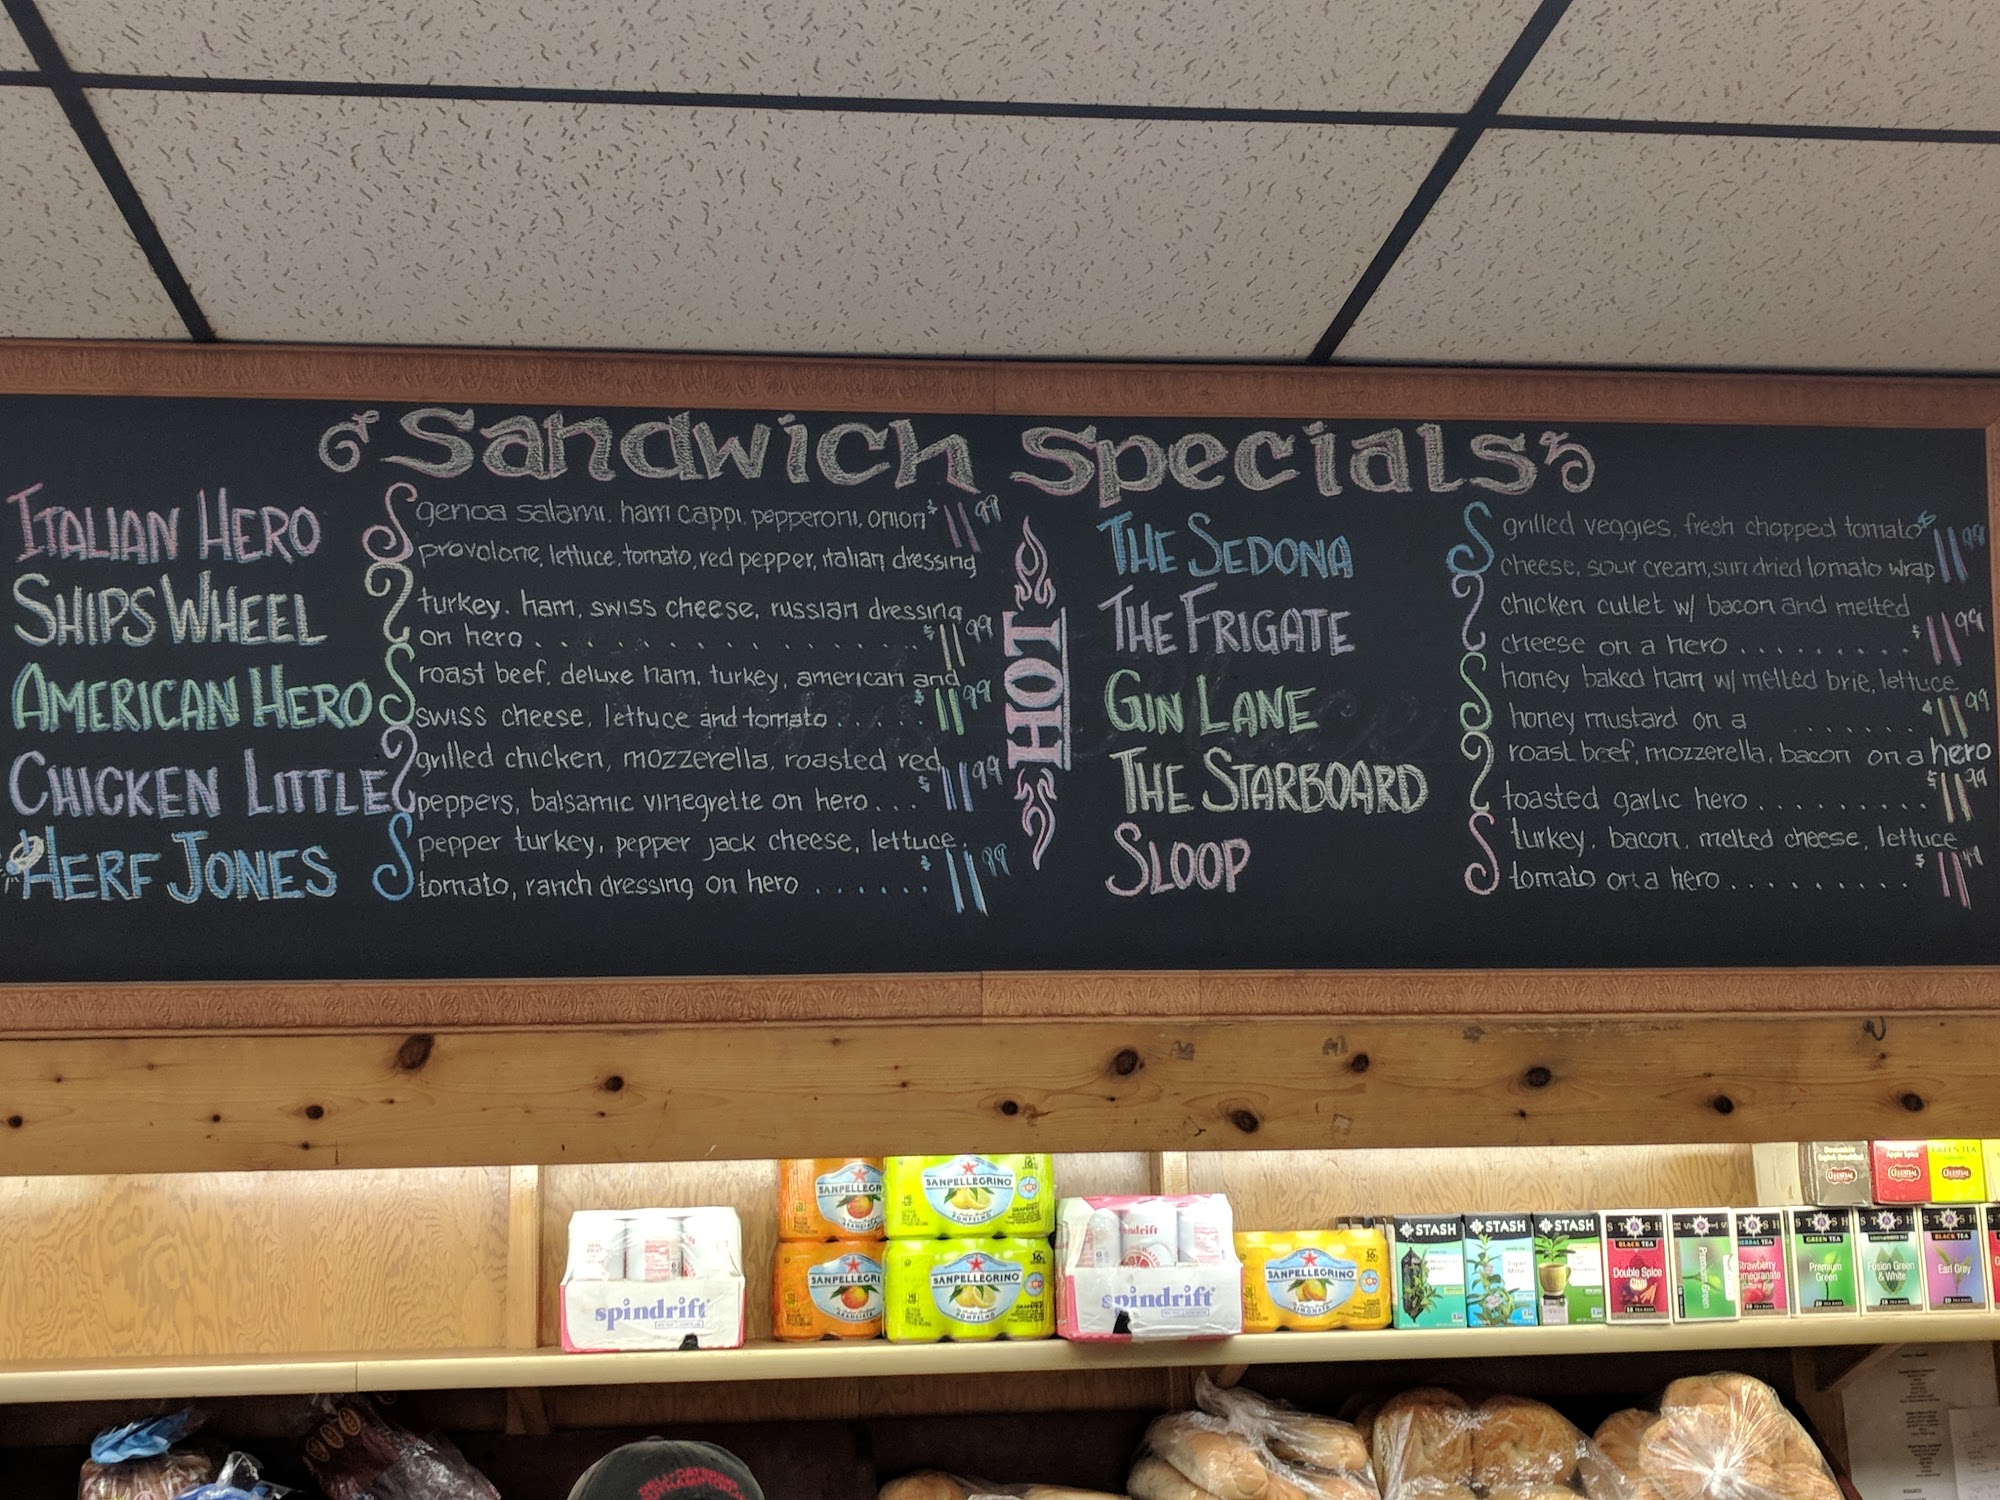 Sandwich Specials
ITALIAN HERO
genoa salami, ham cappi, pepperoni, onion $11.99
provolone, lettuce, tomato, red pepper, italian dressing
SHIPS WHEEL
turkey, ham, swiss cheese, russian dressing
on hero . . . . . . . . . . . . . . . . $11.99
AMERICAN HERO
roast beef, deluxe ham, turkey, american and
swiss cheese, lettuce and tomato . . . . . . $11.99
CHICKEN LITTLE
grilled chicken, mozzerella, roasted red
peppers, balsamic vinegrette on hero . . . $11.99
HERF JONES
pepper turkey, pepper jack cheese, lettuce,
tomato, ranch dressing on hero . . . . . . $11.99
HOT
THE SEDONA
grilled veggies, fresh chopped tomato $11.99
cheese, sour cream, sun dried tomato wrap
THE FRIGATE
chicken cutlet w/ bacon and melted
cheese on a hero . . . . . . . . . $11.99
GIN LANE
honey baked ham w/ melted brie, lettuce
honey mustard on a . . . . . . . $11.99
hero
THE STARBOARD
roast beef, mozzerella, bacon on a
toasted garlic hero . . . . . . . . . $11.99
SLOOP
turkey, bacon, melted cheese, lettuce
tomato on a hero . . . . . . . . . $11.99
SANPELLEGRINO
ARANCIATA
SANPELLEGRINO
POMPELMO
SANPELLEGRI
ARANCIATA
SANPELLEGRINO
POMPELMO
spindrift
spindrift
SANPELLEGRINO
LIMONATA
STASH
STASH
Super Mint
STASH
STASH
BLACK TEA
Double Spice
Chai
STASH
Premium Green
STASH
HERBAL TEA
Strawberry
Pomegranate
STASH
GREEN TEA
Premium
Green
STASH
GREEN & WHITE TEA
Fusion Green
& White
STASH
BLACK TEA
Earl Grey
English Breakfast
CELESTIAL
Apple Spice
CELESTIAL
GREEN TEA
CELESTIAL
DELI · CATERING